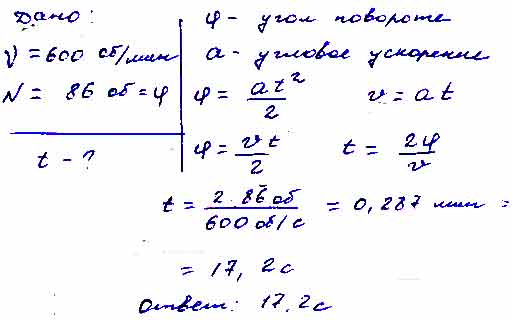 Дано:
ν = 600 об/мин
N = 86 об = φ
t - ?
φ - угол поворота
a - угловое ускорение
φ = at²/2 v = at
φ = vt/2 t = 2φ/v
t = 2·86 об / 600 об/с = 0,287 мин =
= 17,2с
Ответ: 17,2с